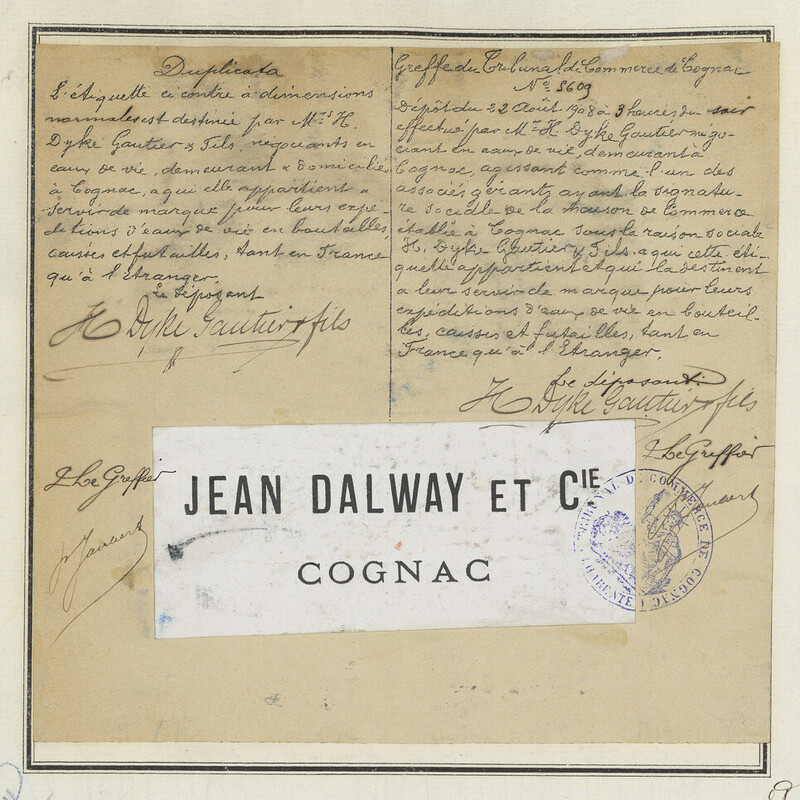 Duplicata
L'étiquette ci contre à dimensions
normales est destinée par Mrs H.
Dyke Gautier & Fils, négociants en
eaux de vie, demeurant & domiciliés
à Cognac, a qui elle appartient a
servir de marque pour leurs expé-
ditions d'eaux de vie en bouteilles,
caisses et futailles, tant en France
qu'à l'Etranger.
Le déposant
H Dyke Gautier & fils
Le Greffier
Greffe du Tribunal de Commerce de Cognac
No 5609
Dépôt du 22 Août 1908 à 3 heures du soir
effectué par Mr H. Dyke Gautier négo-
ciant en eaux de vie, demeurant à
Cognac, agissant comme l'un des
associés gérants ayant la signatu-
re sociale de la maison de Commerce
établie à Cognac sous la raison sociale
H. Dyke Gautier & Fils, a qui cette éti-
quette appartient et qui la destinent
a leur servir de marque pour leurs
expéditions d'eaux de vie en bouteil-
les, caisses et futailles, tant en
France qu'à l'Etranger.
Le déposant
H Dyke Gautier & fils
Le Greffier
JEAN DALWAY ET CIE
COGNAC
TRIBUNAL DE COMMERCE DE COGNAC
CHARENTE